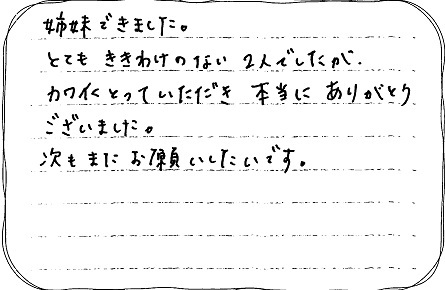 姉妹できました。
とても ききわけのない 2人でしたが.
カワイくとっていただき 本当に ありがとう
ございました。
次もまた お願いしたいです。